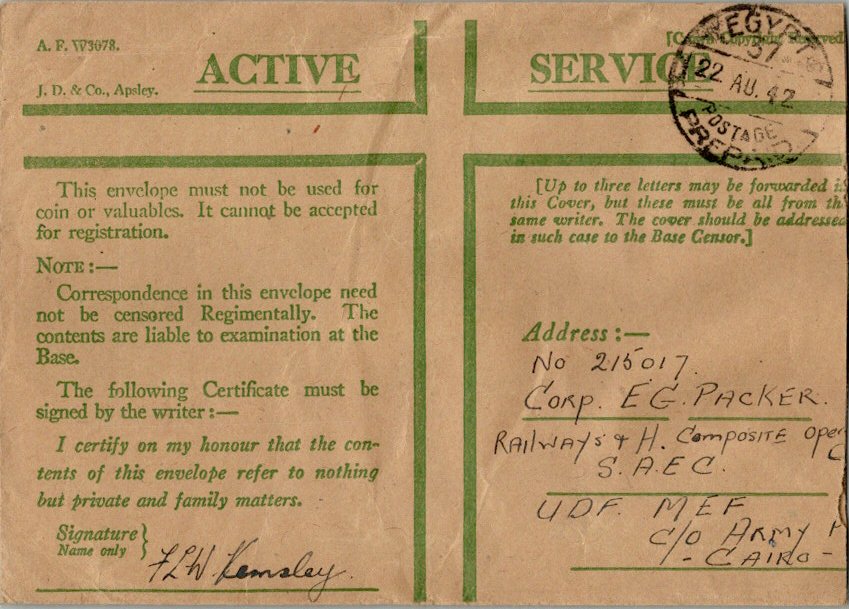 A. F. W3078.
J. D. & Co., Apsley.
ACTIVE SERVICE
[Crown Copyright Reserved
EGYPT
37
22 AU. 42
POSTAGE
PREPAID
This envelope must not be used for
coin or valuables. It cannot be accepted
for registration.
NOTE:—
Correspondence in this envelope need
not be censored Regimentally. The
contents are liable to examination at the
Base.
The following Certificate must be
signed by the writer:—
I certify on my honour that the con-
tents of this envelope refer to nothing
but private and family matters.
Signature
Name only
FLW Kemsley.
[Up to three letters may be forwarded in
this Cover, but these must be all from th
same writer. The cover should be addressed
in such case to the Base Censor.]
Address:—
No 215017.
CORP. EG. PACKER.
RAILWAYS & H. COMPOSITE Oper
S.A.E.C.
UDF. MEF
C/O ARMY
- CAIRO -